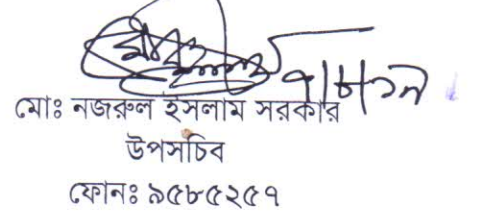 মোঃ নজরুল ইসলাম সরকার
উপসচিব
ফোনঃ ৯৫৮৫২৫৭